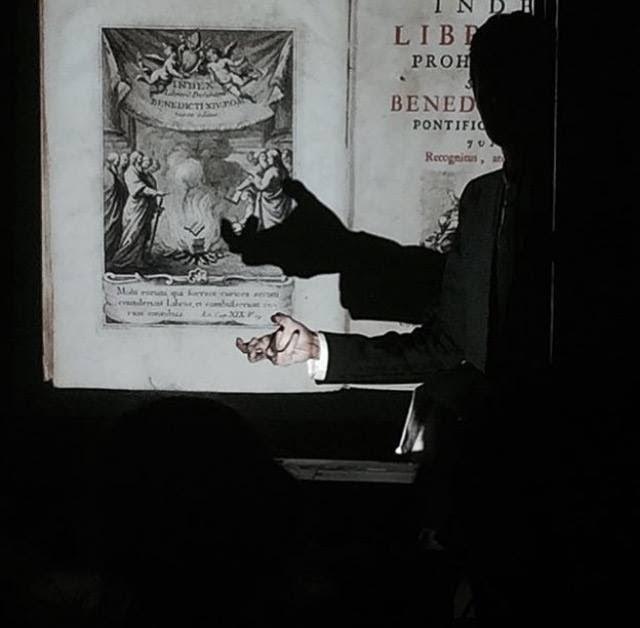 INDEX
Librorum Prohibitorum
BENEDICTI XIV. P.O.M.
Multi eorum, qui fuerant curiosa sectati
contulerunt Libros, et combusserunt co-
ram omnibus Act. Cap. XIX. V. 19.
INDE
LIB
PROH
S
BENED
PONTIFIC
Recognitus,